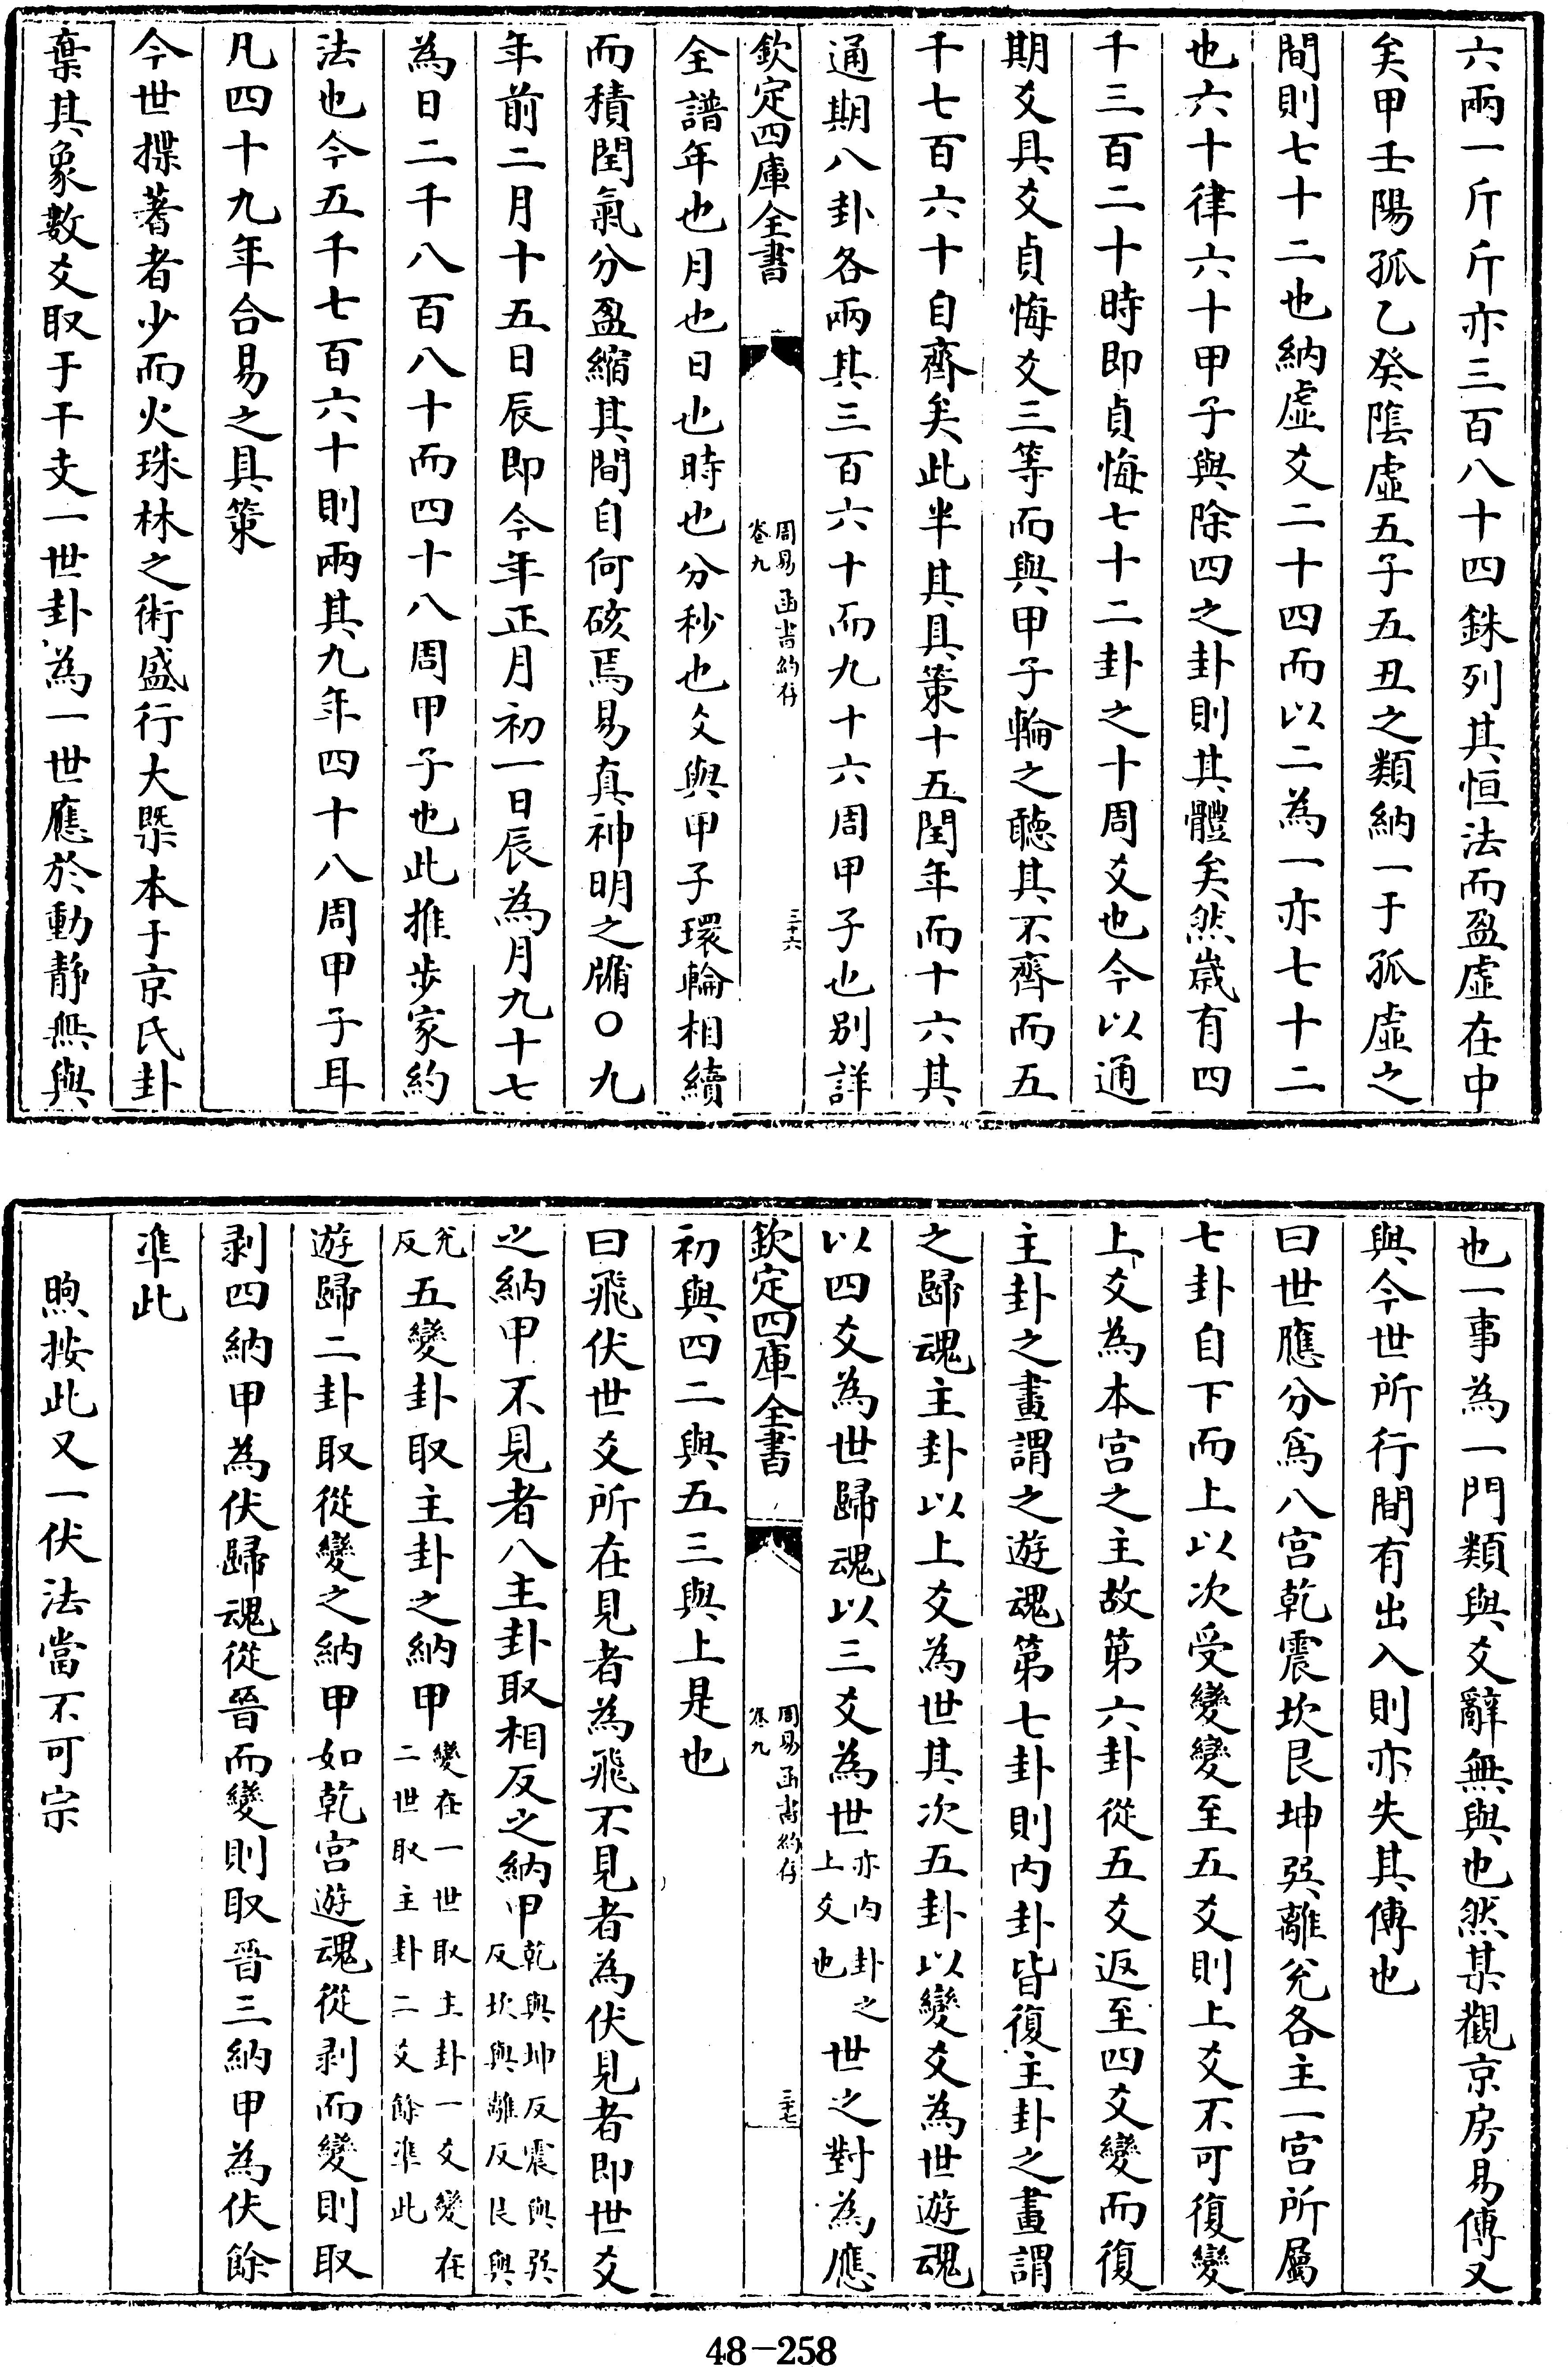 六兩一斤斤亦三百八十四銖列其恒法而盈虚在中
矣甲壬陽孤乙癸陰虚五子五丑之類納一于孤虚之
間則七十二也納虚爻二十四而以二為一亦七十二
也六十律六十甲子與除四之卦則其體矣然歲有四
千三百二十時即貞悔七十二卦之十周爻也今以通
期爻具爻貞悔爻三等而與甲子輪之聽其不齊而五
千七百六十自齊矣此半其具策十五閏年而十六其
通期八卦各兩其三百六十而九十六周甲子也别詳
欽定四庫全書
周易函書約存
卷九
三十六
全譜年也月也日也時也分秒也爻與甲子環輪相續
而積閏氣分盈縮其間自何硋焉易真神明之牖〇九
年前二月十五日辰即今年正月初一日辰為月九十七
為日二千八百八十而四十八周甲子也此推步家約
法也今五千七百六十則兩其九年四十八周甲子耳
凡四十九年合易之具策
今世揲蓍者少而火珠林之術盛行大槩本于京氏卦
棄其象數爻取于干支一世卦為一世應於動静無與
也一事為一門類與爻辭無與也然某觀京房易傳又
與今世所行間有出入則亦失其傳也
曰世應分為八宫乾震坎艮坤巽離兊各主一宫所屬
七卦自下而上以次受變變至五爻則上爻不可復變
上爻為本宫之主故第六卦從五爻返至四爻變而復
主卦之畫謂之遊魂第七卦則内卦皆復主卦之畫謂
之歸魂主卦以上爻為世其次五卦以變爻為世遊魂
以四爻為世歸魂以三爻為世亦内卦之上爻也世之對為應
欽定四庫全書
周易函書約存
卷九
三十七
初與四二與五三與上是也
曰飛伏世爻所在見者為飛不見者為伏見者即世爻
之納甲不見者八主卦取相反之納甲乾與坤反震與巽反坎與離反艮與
兊反五變卦取主卦之納甲變在一世取主卦一爻變在二世取主卦二爻餘凖此
遊歸二卦取從變之納甲如乾宫遊魂從剥而變則取
剥四納甲為伏歸魂從晉而變則取晉三納甲為伏餘
凖此
煦按此又一伏法當不可宗
48-258